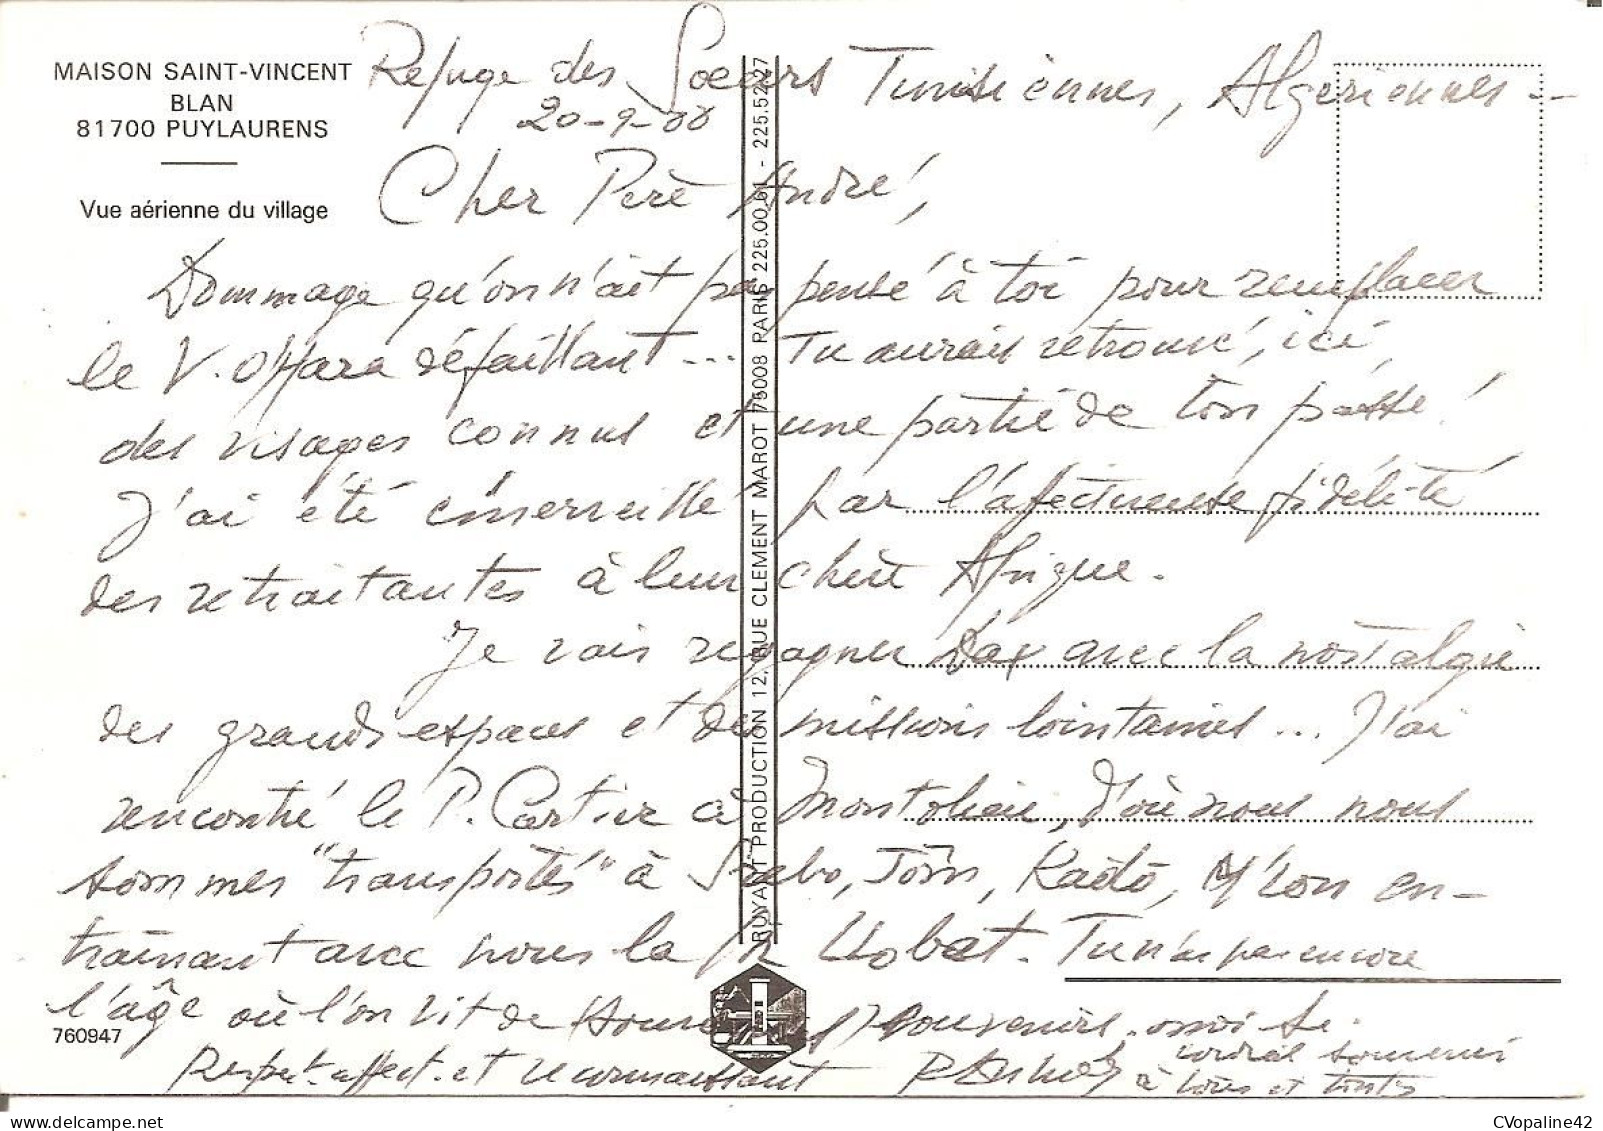 MAISON SAINT-VINCENT
BLAN
81700 PUYLAURENS
Vue aérienne du village
Refuge des Soeurs Tunisiennes, Algériennes --
20-9-88
Cher Père André,
Dommage qu'on n'ait pas pensé à toi pour remplacer
le V. défaillant ... Tu aurais retrouvé, ici,
des visages connus et une partie de ton passé !
J'ai été émerveillé par l'afectueuse fidélité
des retraitantes à leur chère Afrique.
Je vais regagner Dax avec la nostalgie
des grands espaces et des missions lointaines ... J'ai
rencontré le P. Cartier à Montolieu, d'où nous nous
sommes "transportés" à
traînant avec nous la Llobet. Tu n'as pas encore
l'âge où l'on vit de souvenirs, moi si.
Respect. affect. et reconnaissant
cordial souvenir
à tous et toutes
760947
RUYANT PRODUCTION 12, RUE CLEMENT MAROT 75008 PARIS 225.00.61 - 225.52.27
CVopaline42